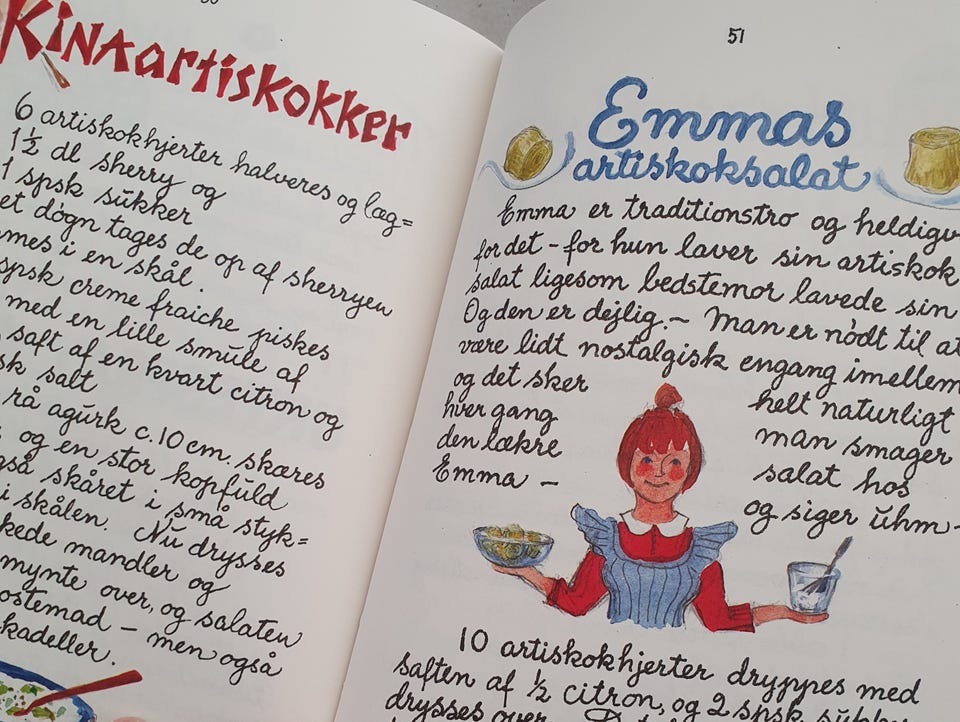 Kinaartiskokker
6 artiskokhjerter halveres og læg=
1½ dl sherry og
1 spsk sukker
et døgn tages de op af sherryen
mes i en skål.
spsk creme fraiche piskes
med en lille smule af
saft af en kvart citron og
sk salt
rå agurk c. 10 cm. skæres
og en stor kopfuld
også skåret i små styk=
i skålen. Nu drysses
kede mandler og
mynte over, og salaten
ostemad – men også
kadeller.
51
Emmas
artiskoksalat
Emma er traditionstro og heldigv
for det – for hun laver sin artiskok
salat ligesom bedstemor lavede sin
Og den er dejlig. – Man er nødt til at
være lidt nostalgisk engang imellem
og det sker helt naturligt
hver gang man smager
den lækre salat hos
Emma – og siger uhm –
10 artiskokhjerter dryppes med
saften af ½ citron, og 2 spsk sukker
drysses over.